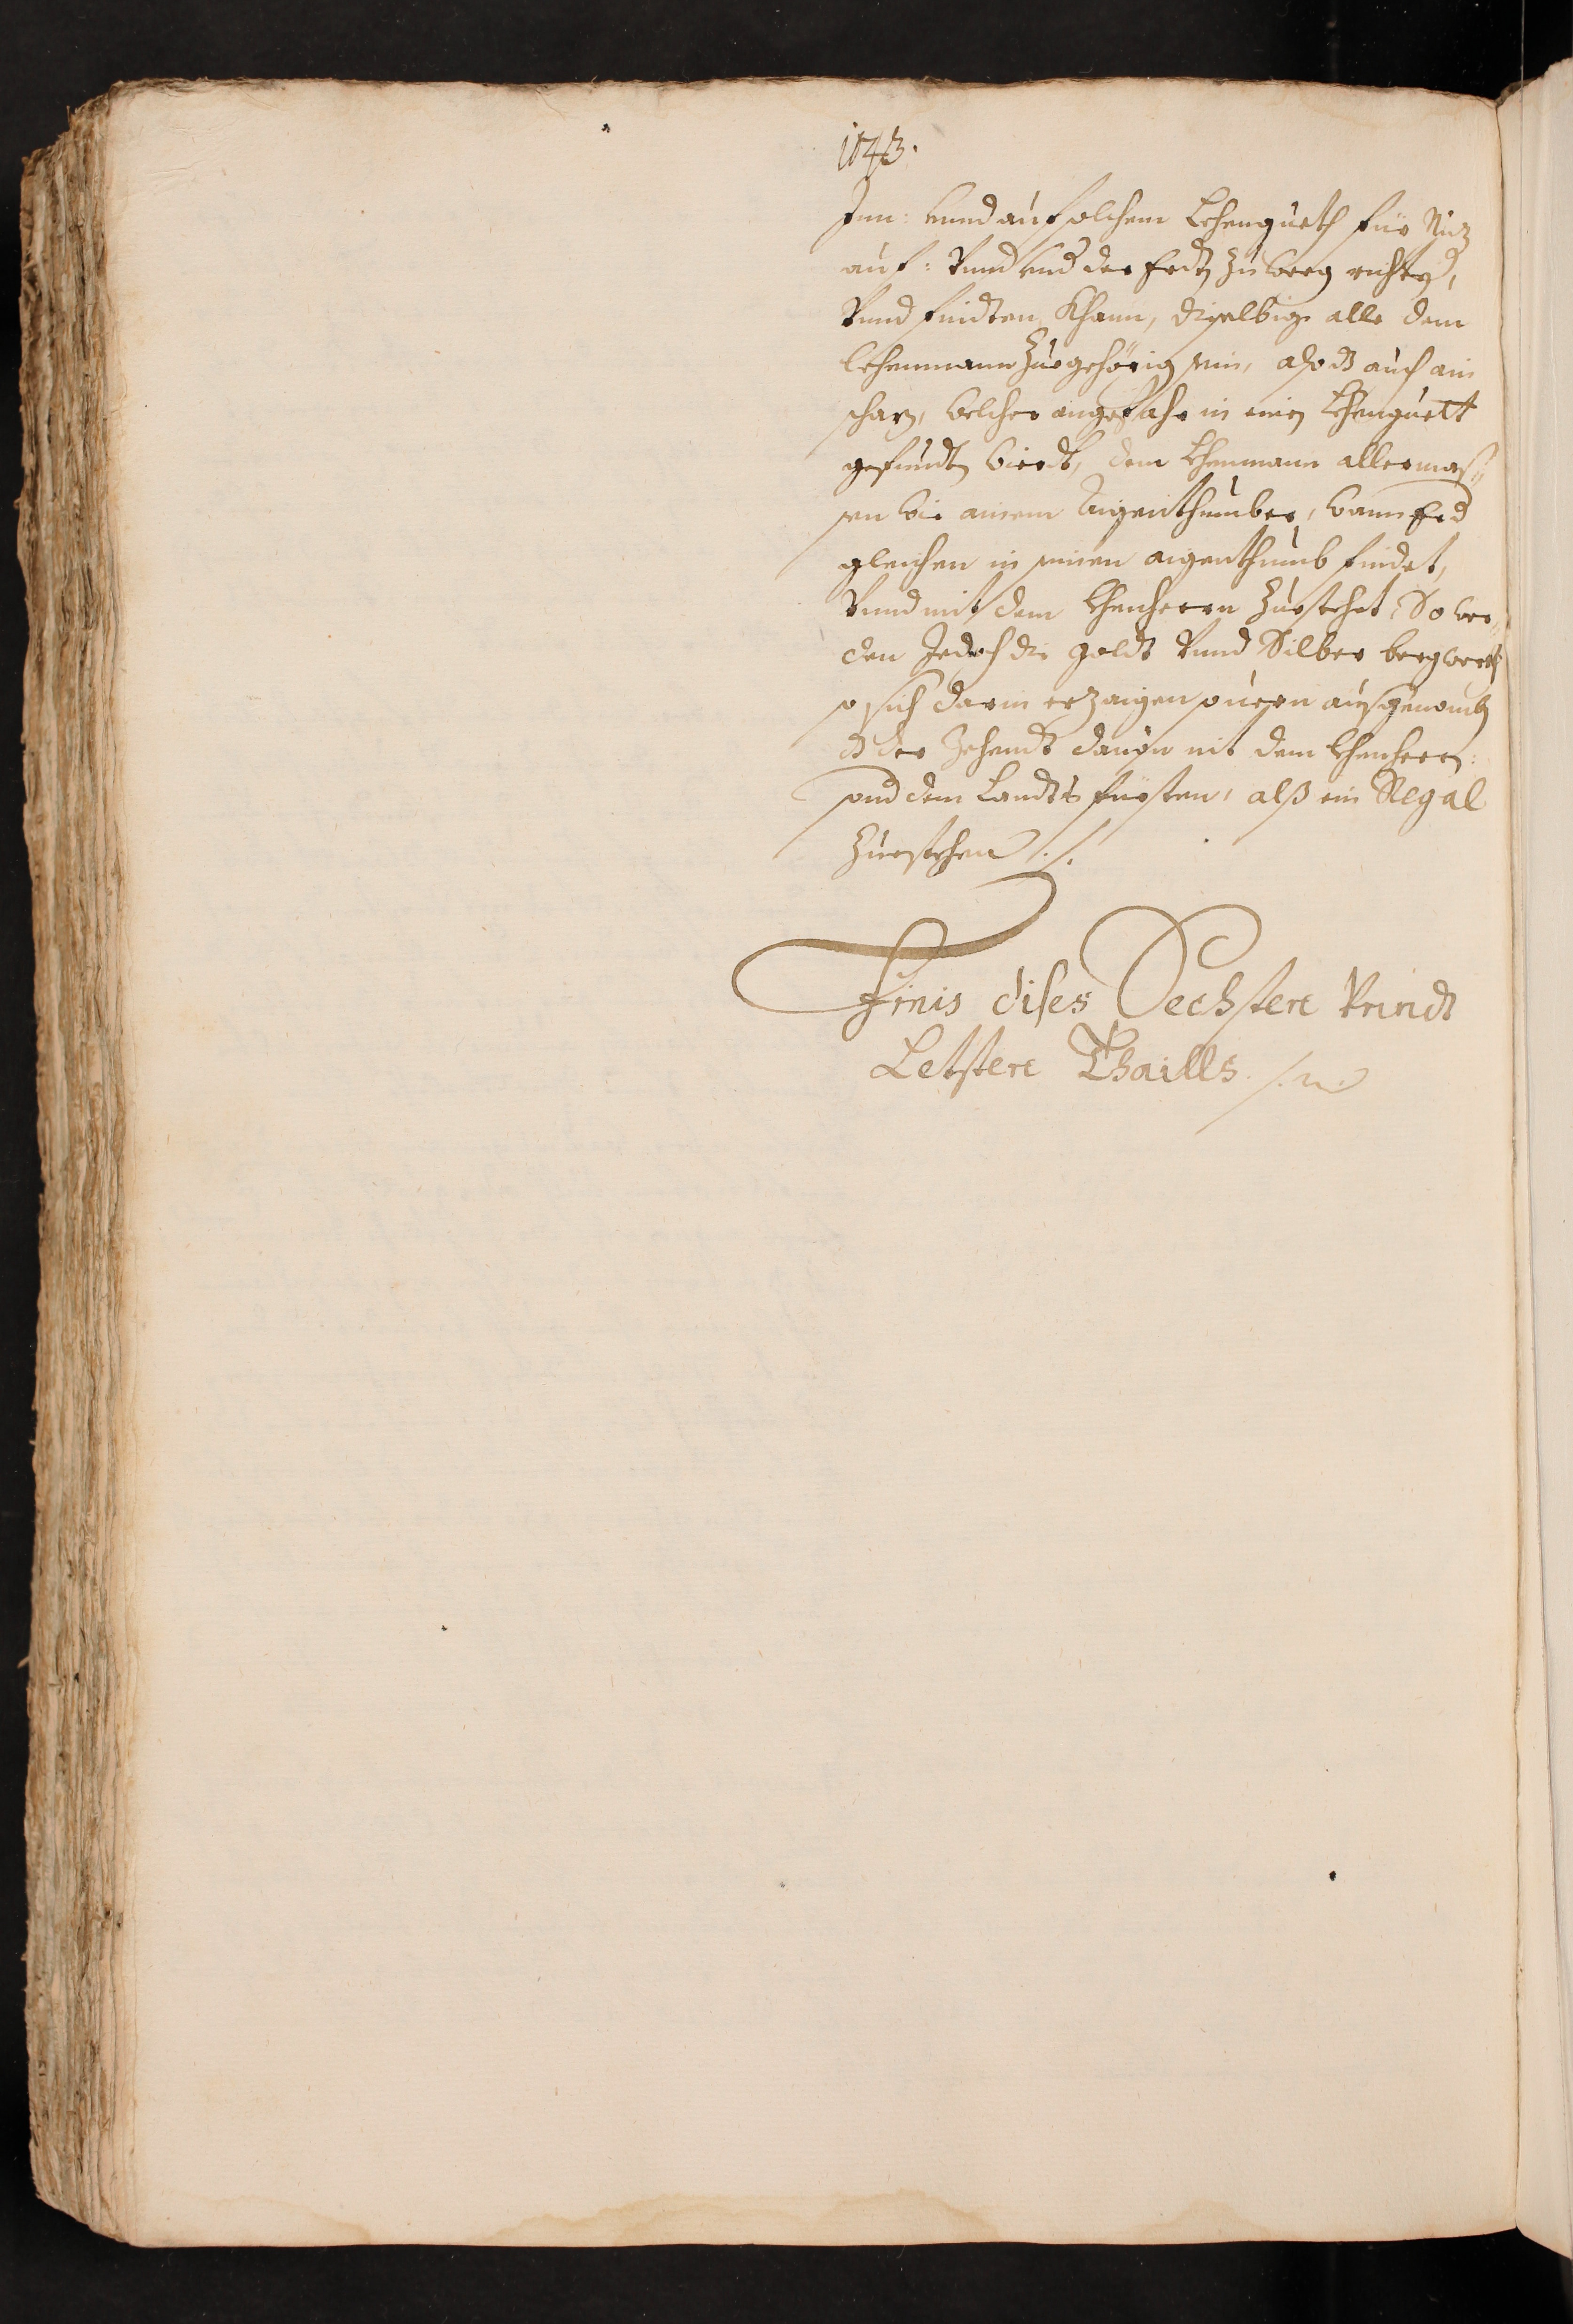 1143.
Inn: vnnd auf solchem Lehenguett für Nuz
auf: Vnnd vnd der Erdt zu weeg richten,
Vnnd findten khann, dieselbige alle dem
lehenmann zuegehörig sein, also dz auch ain
schaz, welcher vngefahr in einen Lehenguett
gefundten wierdt, dem Lehenmann allermas„
sen wie ainem Aigenthumber, wann Er d
gleichen in seinen aigenthumb findet,
Vnnd nit dem Lehenherrn zuestehet, So wer„
den Jedoch die goldt Vnnd Silber bergwerkh
so sich darin erzaigen souern ausgenomben
dz der Zehendt dauon nit dem lehenherrn:
sond dem Landtsfürsten, alß ein Regal
zuestehen ./.
Finis dises Sechsten Vnndt
Letsten Thaills